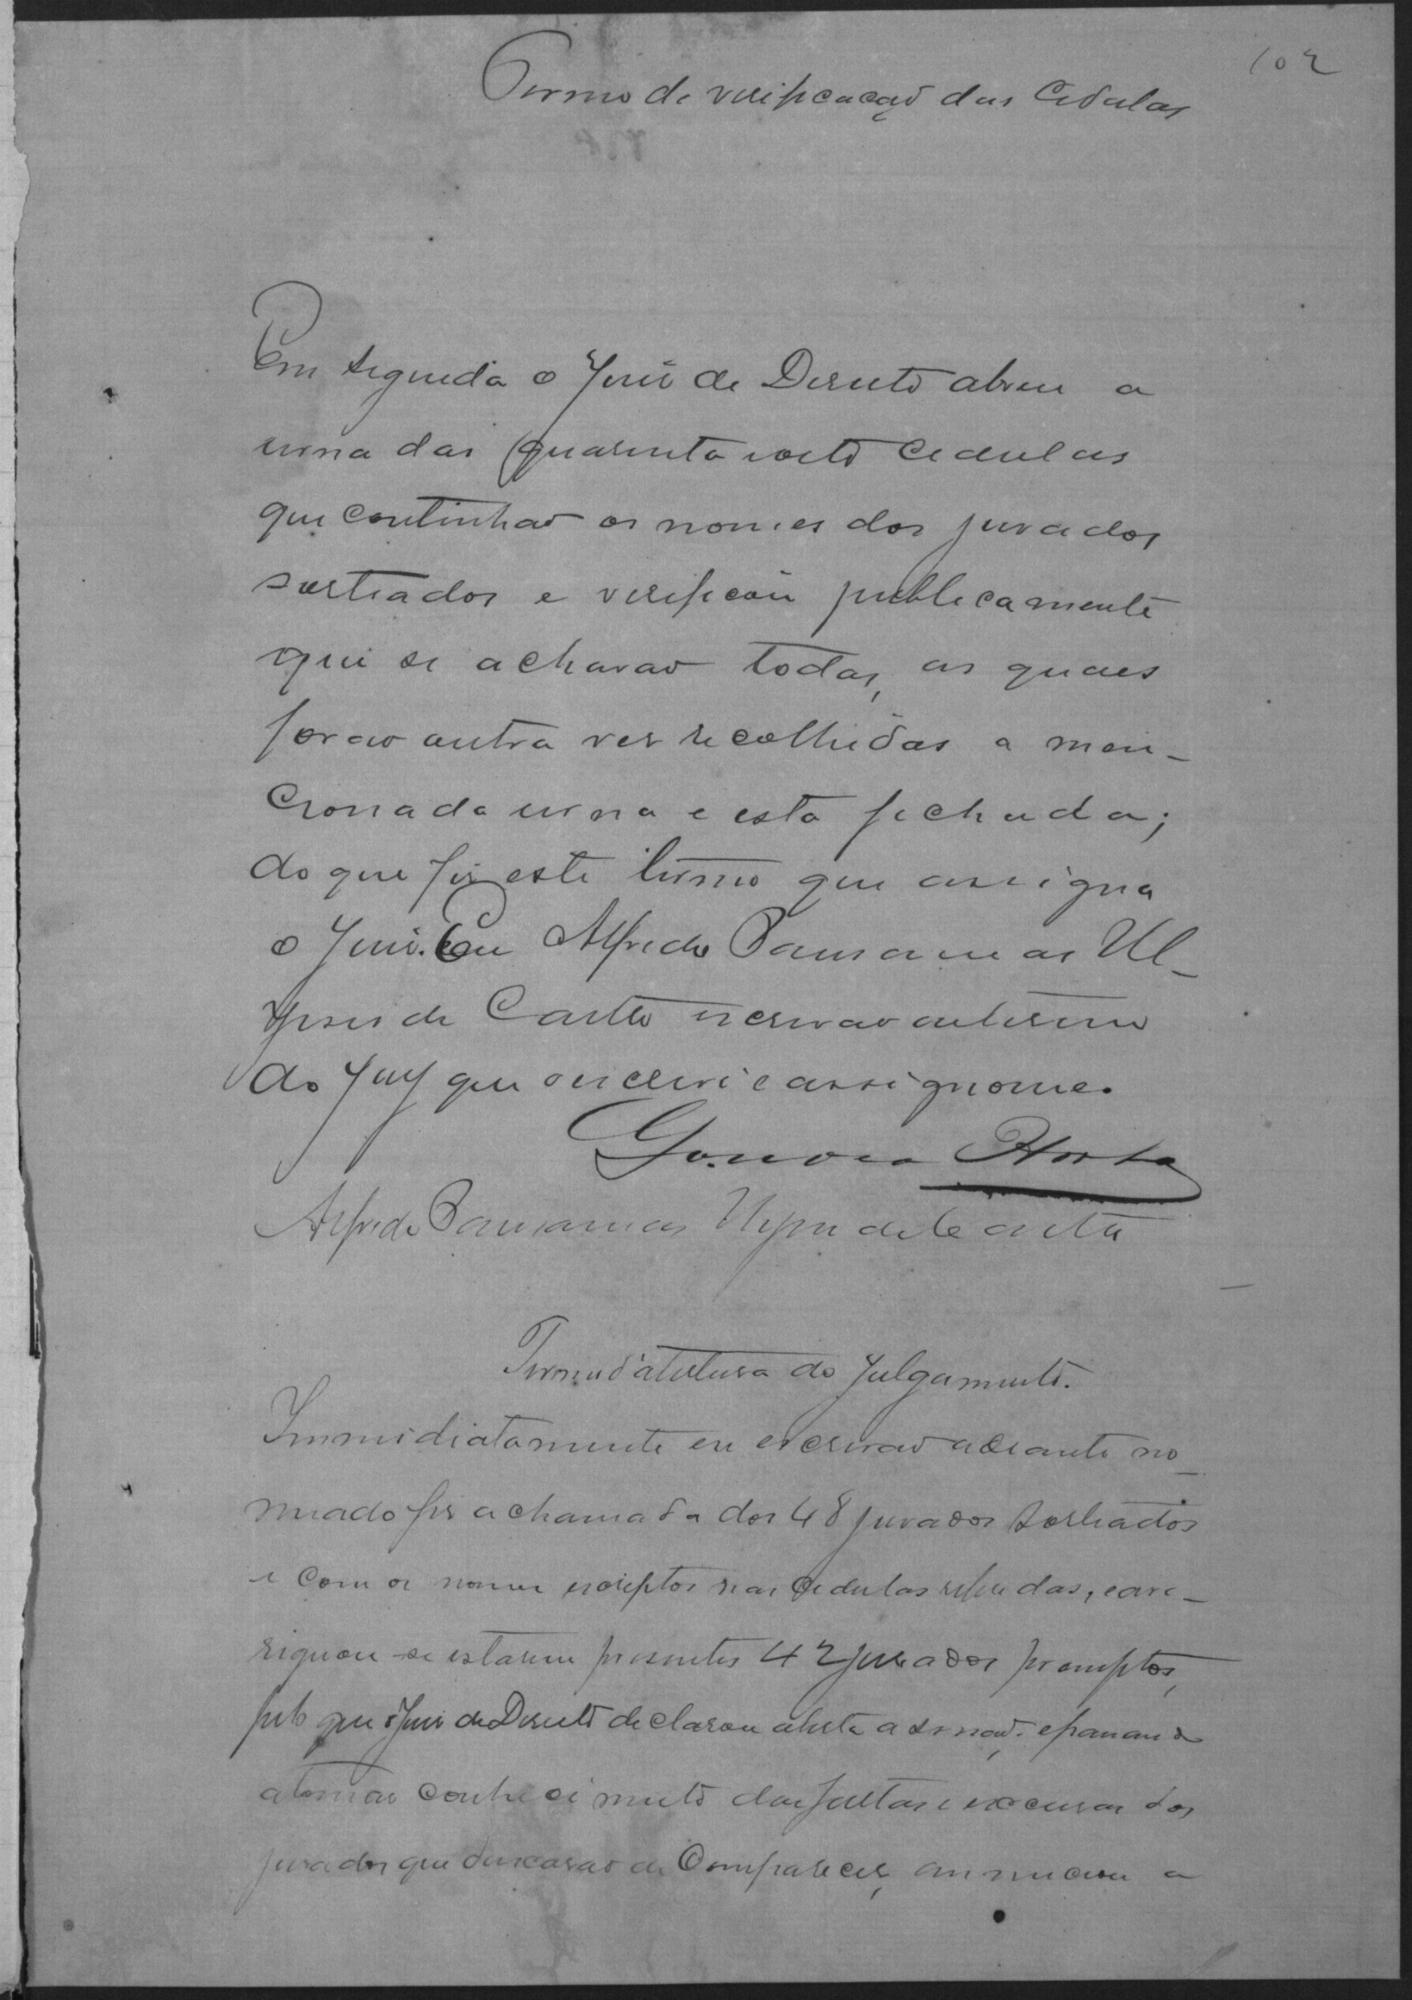 102
Termo de verificação das Cedulas
Em seguida o Juiz de Direito abriu a
urna das quarenta e oito cedulas
que continhão os nomes dos jurados
sorteados e verificou publicamente
que se achavão todas, as quaes
forão outra vez recolhidas a men-
cionada urna e esta fechada;
do que fiz este termo que assigna
o Juiz. Eu Alfredo Pausanias Ul-
ysses de Castro escrivão interino
do Jury que o escrevi e assignome.
Gouvea Horta
Alfredo Pausanias Ulysses de Castro
Termo d'abertura do julgamento.
Immediatamente eu escrivão adeante no-
meado fiz a chamada dos 48 jurados sorteados
e com os nomes escriptos nas cedulas referidas, e ave-
riguou-se estarem presentes 42 jurados promptos,
pelo que o Juiz de Direito declarou aberta a sessão. e passando
a tomar conhecimento das faltas e excusas dos
jurados que deixarão de Comparecer, annunciou a